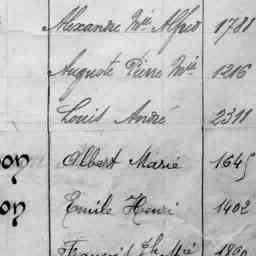 Alexandre Mie Alfred 1788
Auguste Pierre Mie 1216
Louis André 2311
on Albert Marie 1645
on Emile Henri 1402